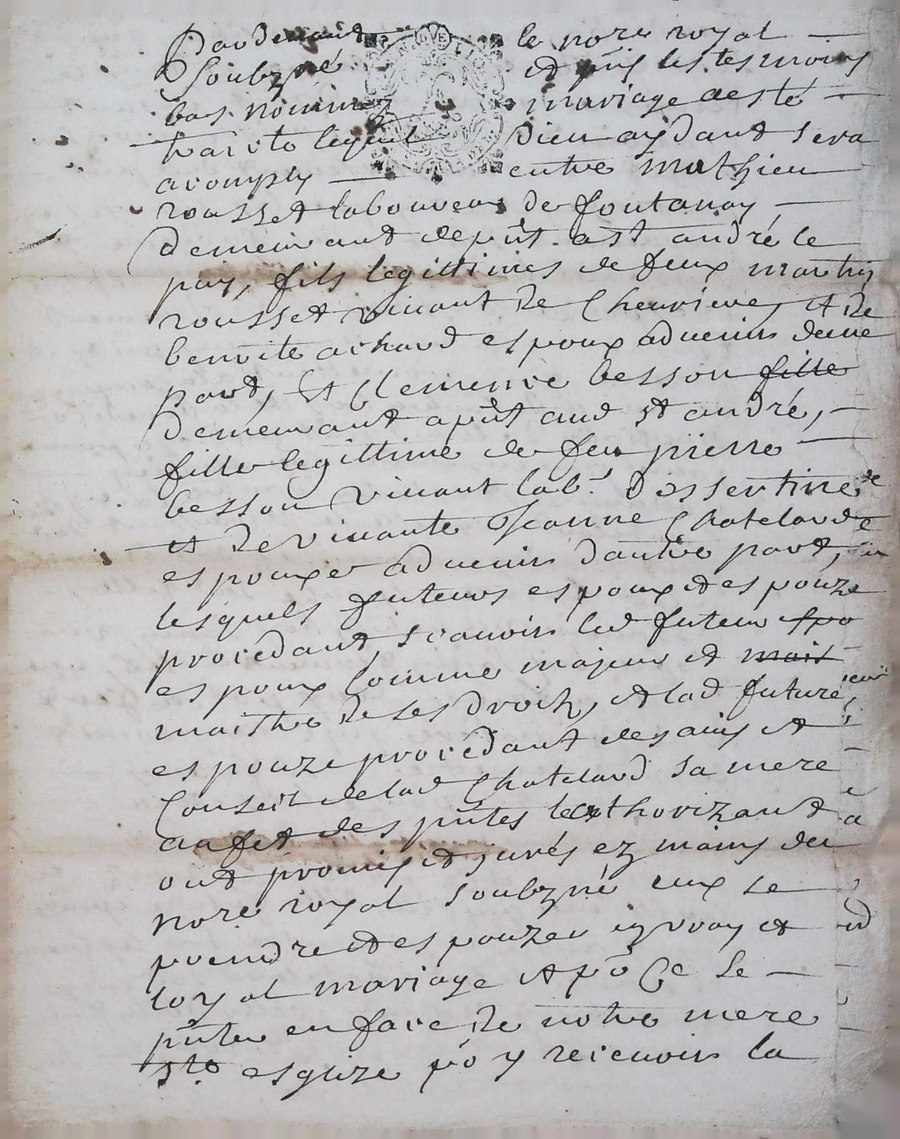 Pardevant le nore royal
soubzné et pnts les tesmoins
bas nommez mariage a esté
traicté lequel Dieu aydant sera
acomply entre mathieu
rousset laboureur de fontanay
demeurant de pnt a st andré le
puy, fils legittimes de feux mathy
rousset vivant de Chevrieres, et de
benoite achard espoux advenir dune
part, Et Clemence besson fille
demeurant a pnt aud st andré,
fille legittime de feu pierre
besson vivant labr. Dessertine
et de vivante Jeanne Chatelarde
espouze advenir dautre part,
lesquels futeurs espoux et espouze
procédant, scavoir led futeur espo
espoux Comme majeur et mais
maistre de ses droitz, et lad future
espouze procédant de sauis et
Conseil de lad Chatelard sa mere
au fet des pntes lauthorizant
ont promis et jurés ez mains du
nore royal soubzné eux se
prendre et espouzer en vray et
loyal mariage et po Ce se
pnter en face de notre mere
ste esglize po y recevoir la